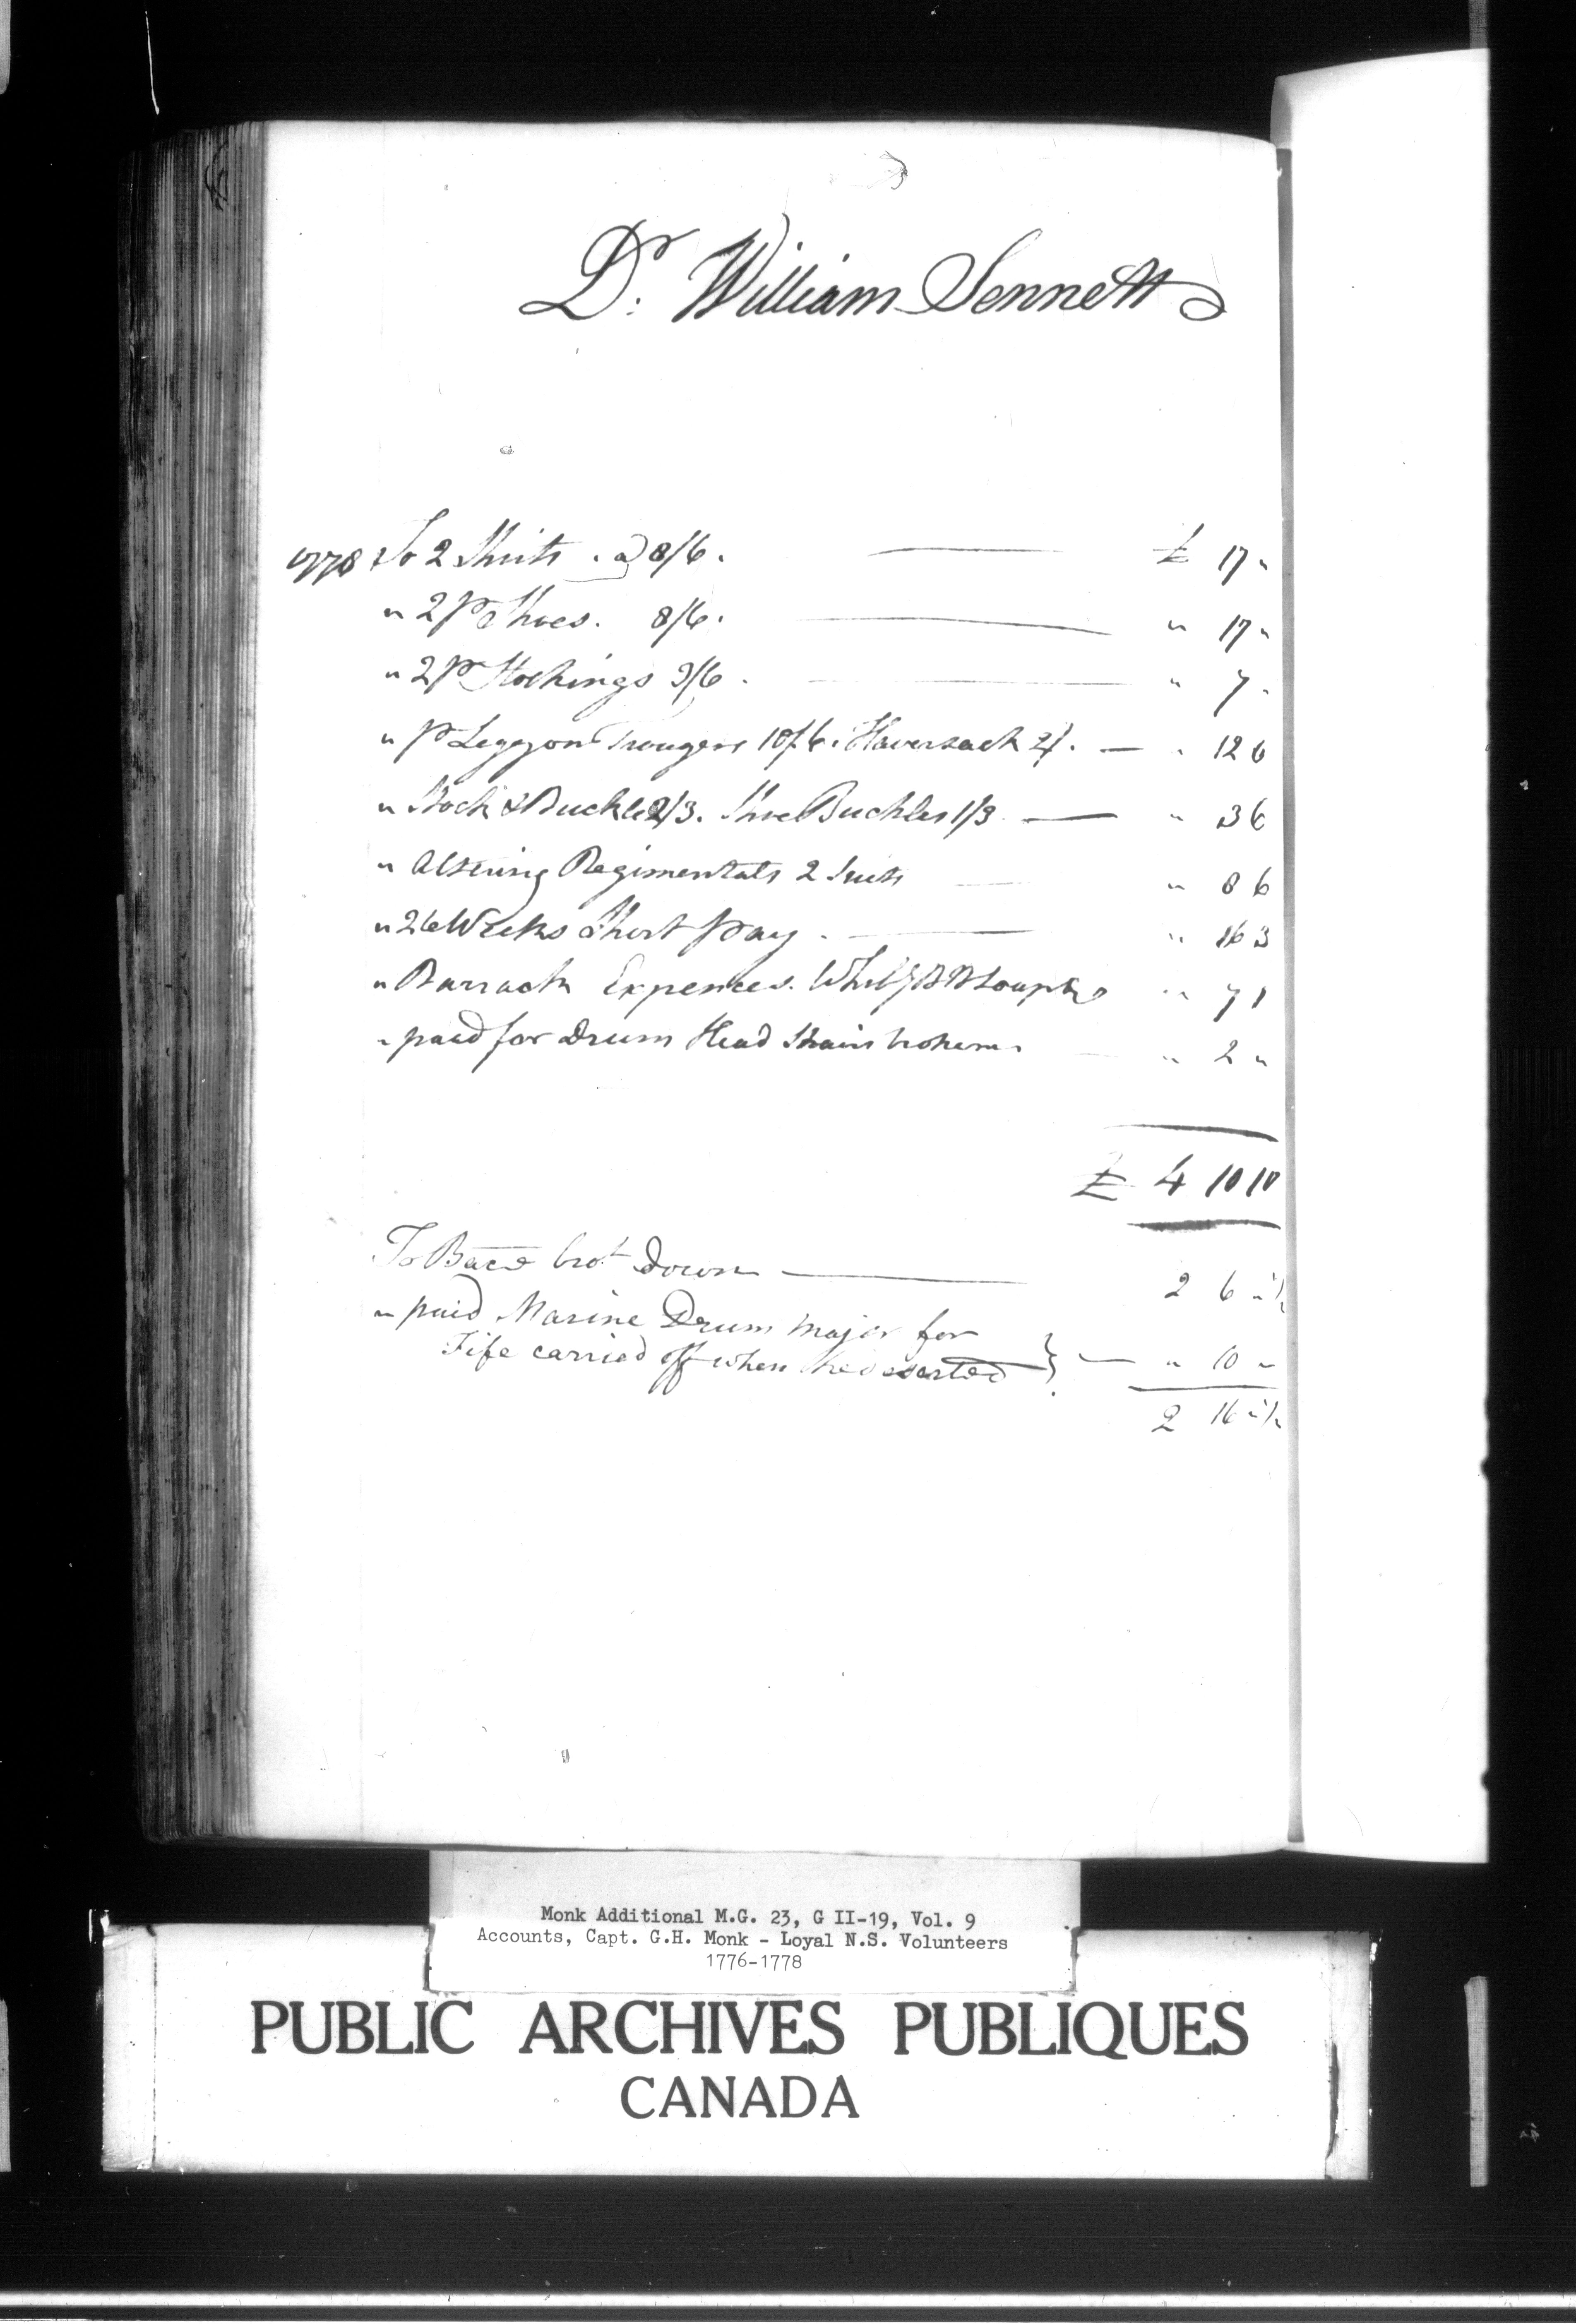 Dr. William Sennett
1778 To 2 Shirts . @ 8/6 . £ 17 "
" 2 Pr Shoes . 8/6 . " 17 "
" 2 Pr Stockings 3/6 . " 7 "
" Pr Leggon Trowgers 10/6 . Haversack 2/ . " 12 6
" Stock & Buckle 2/3 . Shoe Buckles 1/3 " 3 6
" Altering Regimentals 2 Suits " 8 6
" 26 Weeks Short pay . " 16 3
" Barrack Expences . " 7 1
" paid for Drum Head broken " 2 "
£ 4 10 10
To Bace brot Down 2 6 " ½
" paid Marine Drum major for
Fife carried off when he deserted } " 10 "
2 16 " ½
Monk Additional M.G. 23, G II-19, Vol. 9
Accounts, Capt. G.H. Monk - Loyal N.S. Volunteers
1776-1778
PUBLIC ARCHIVES PUBLIQUES
CANADA